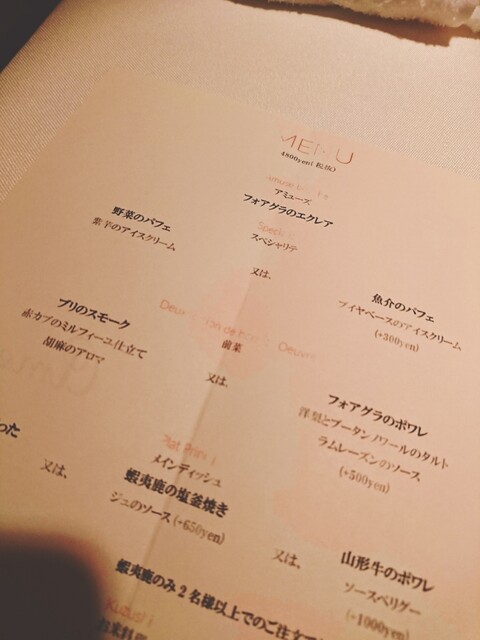 MENU
4800yen(税抜)
アミューズ
フォアグラのエクレア
スペシャリテ
野菜のパフェ
紫芋のアイスクリーム
又は、
魚介のパフェ
ブイヤベースのアイスクリーム
(+300yen)
前菜
ブリのスモーク
赤カブのミルフィーユ仕立て
胡麻のアロマ
又は、
フォアグラのポワレ
洋梨とブータンノワールのタルト
ラムレーズンのソース
(+500yen)
メインディッシュ
った
又は、
蝦夷鹿の塩釜焼き
ジュのソース(+650yen)
又は、
山形牛のポワレ
ソースペリグー
(+1000yen)
蝦夷鹿のみ2名様以上でのご注文